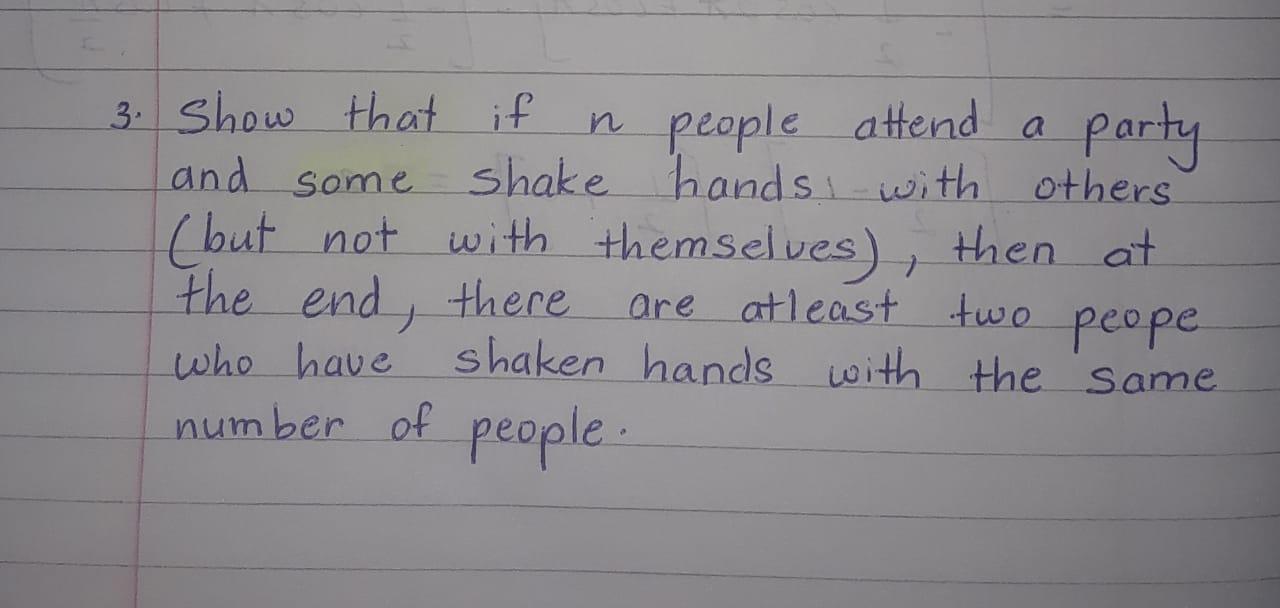 3. Show that if n people attend a party
and some shake hands with others
(but not with themselves), then at
the end, there are atleast two peope
who have shaken hands with the same
number of people.